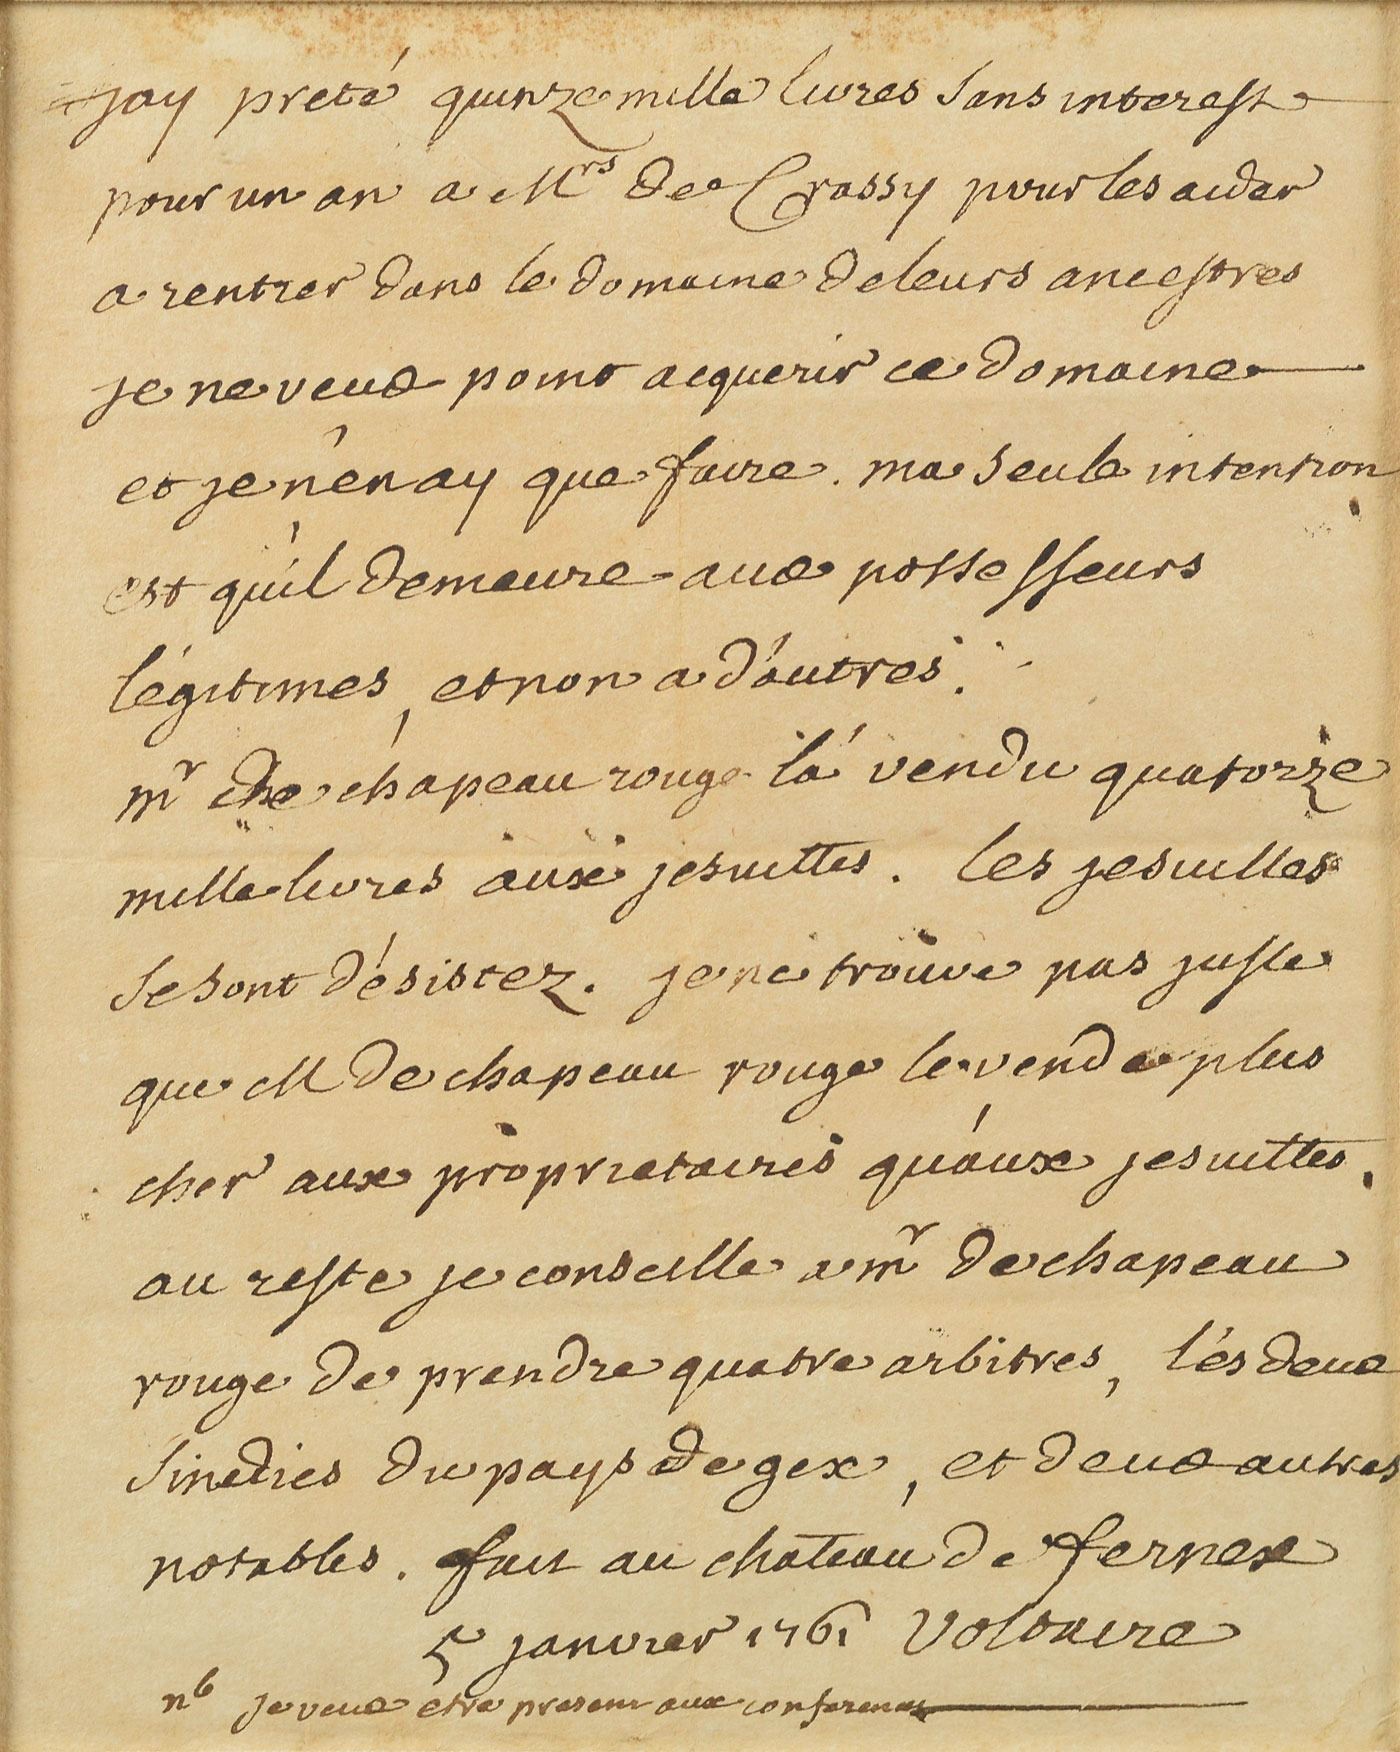 jay preté quinze mille livres sans interest
pour un an a Mrs de Crassy pour les aider
a rentrer dans le domaine de leurs ancestres
je ne veux point acquerir ce domaine
et je n'en ay que faire. ma seule intention
est qu'il demeure aux possesseurs
légitimes, et non a d'autres.
mr de chapeau rouge l'a vendu quatorze
mille livres aux jesuittes. les jesuittes
se sont désistez. je ne trouve pas juste
que M de chapeau rouge le vende plus
cher aux proprietaires qu'aux jesuittes.
au reste je conseille a mr de chapeau
rouge de prendre quatre arbitres, les deux
sindics du pays de gex, et deux autres
notables. fait au chateau de fernex
5 janvier 1761 Voltaire
nb je veux etre present aux conferences